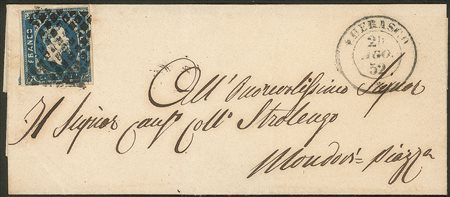 FRANCO
CHERASCO
25
AGO.
52
All' Onorevolissimo Signor
Il Signor Caus. Coll. Strolengo
Mondovì Piazza